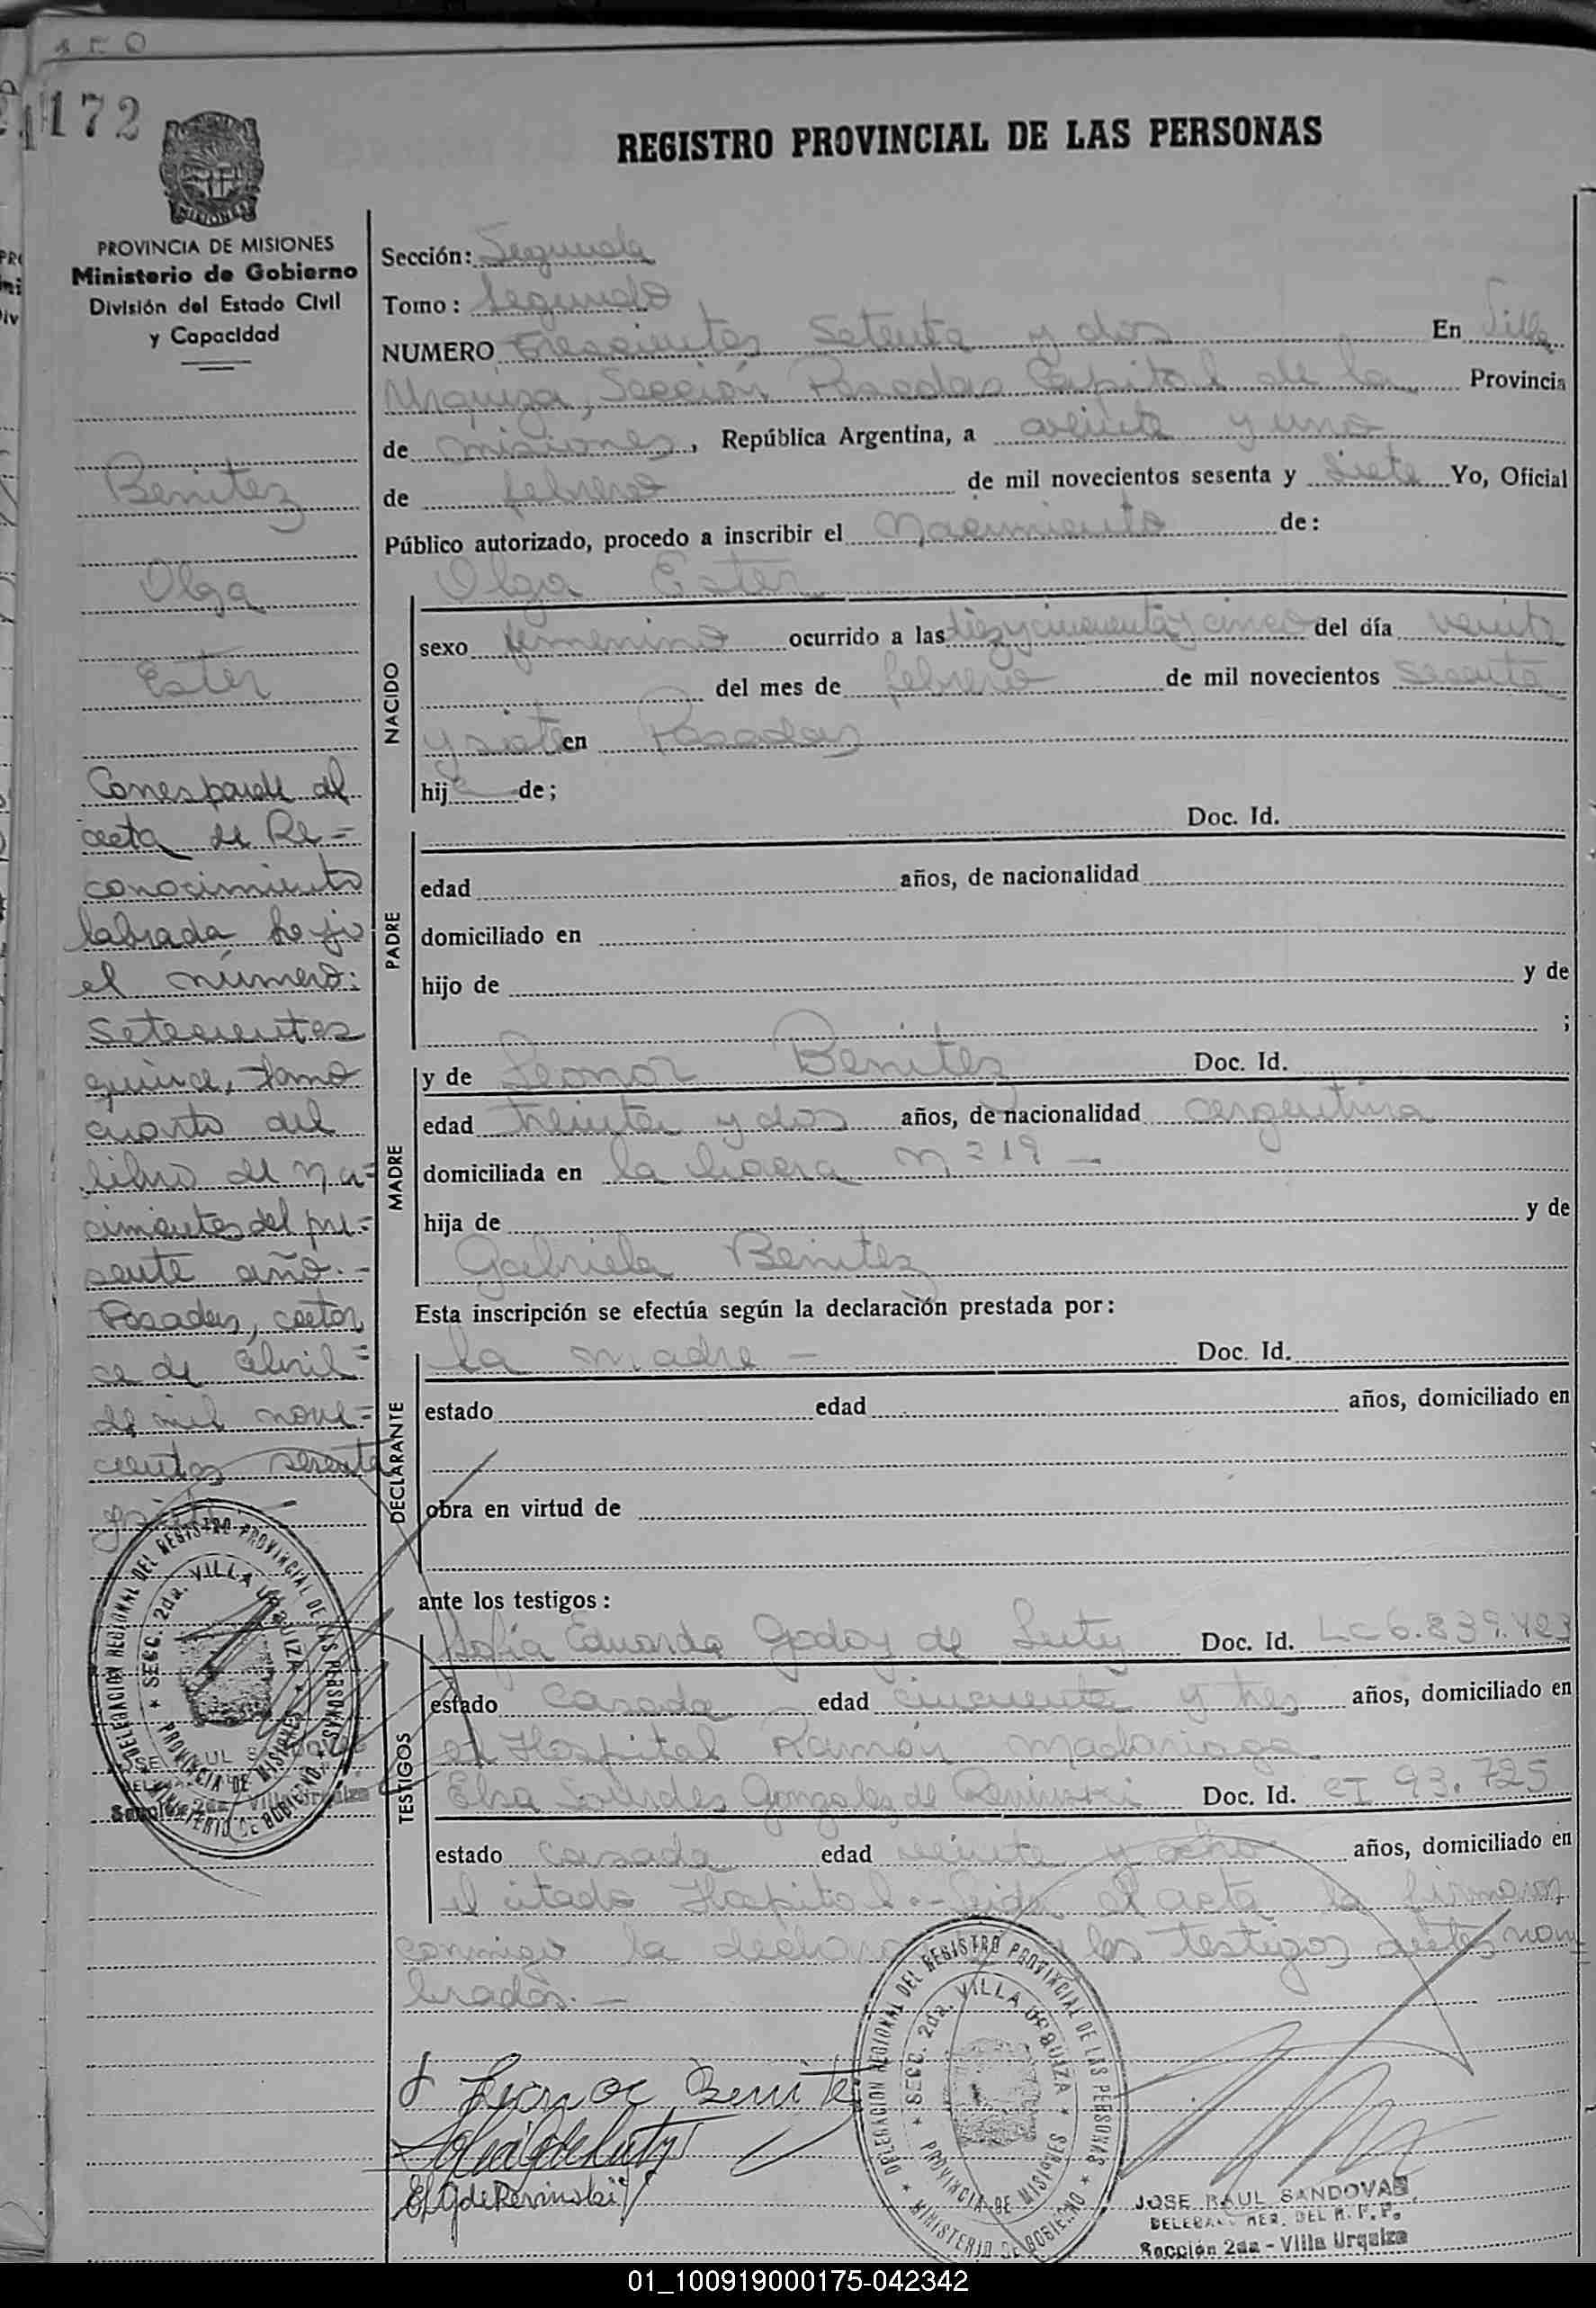 172
REGISTRO PROVINCIAL DE LAS PERSONAS
MISIONES
PROVINCIA DE MISIONES
Ministerio de Gobierno
División del Estado Civil
y Capacidad
Benitez
Olga
Ester
Corresponde al
acta de Re=
conocimiento
labrada bajo
el número:
Setecientos
quince, tomo
cuarto del
libro de Na=
cimientos del pre=
sente año.-
Posadas, cator
ce de Abril=
de mil nove=
cientos sesenta
y siete
DELEGACION REGIONAL DEL REGISTRO PROVINCIAL DE LAS PERSONAS
SECC. 2da. VILLA URQUIZA
PROVINCIA DE MISIONES
MINISTERIO DE GOBIERNO
JOSE RAUL SANDOVAL
Sección 2da - Villa Urquiza
Sección: Segunda
Tomo: Segundo
NUMERO Trescientos Setenta y dos En Villa
Urquiza, Sección Posadas Capital de la Provincia
de Misiones, República Argentina, a veinte y uno
de febrero de mil novecientos sesenta y Siete Yo, Oficial
Público autorizado, procedo a inscribir el Nacimiento de:
Olga Ester
NACIDO
sexo femenino ocurrido a las diez y cincuenta y cinco del día veinte
del mes de febrero de mil novecientos sesenta
y siete en Posadas
hija de;
PADRE
Doc. Id.
edad años, de nacionalidad
domiciliado en
hijo de y de
;
MADRE
y de Leonor Benitez Doc. Id.
edad treinta y dos años, de nacionalidad argentina
domiciliada en la chacra Nº 19 -
hija de y de
Gabriela Benitez
Esta inscripción se efectúa según la declaración prestada por:
DECLARANTE
la madre - Doc. Id.
estado edad años, domiciliado en
obra en virtud de
ante los testigos:
TESTIGOS
Sofía Eduarda Godoy de Luty Doc. Id. LC 6.839.423
estado Casada edad cincuenta y tres años, domiciliado en
el Hospital Ramón Madariaga
Elsa Lourdes Gonzalez de Reninski Doc. Id. CI 93.725
estado Casada edad veinte y ocho años, domiciliado en
el citado Hospital.- Leida el acta la firmaron
conmigo la los testigos antes nom
brados.-
Leonor Benitez
DELEGACION REGIONAL DEL REGISTRO PROVINCIAL DE LAS PERSONAS
SECC. 2da. VILLA URQUIZA
PROVINCIA DE MISIONES
MINISTERIO DE GOBIERNO
JOSE RAUL SANDOVAL
DEL R. P. P.
Sección 2da - Villa Urquiza
01_100919000175-042342